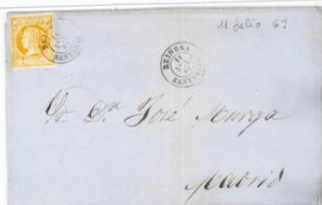 11 Julio 61
REINOSA
11
SANTANDER
Sr. Dn. José Murga
Madrid